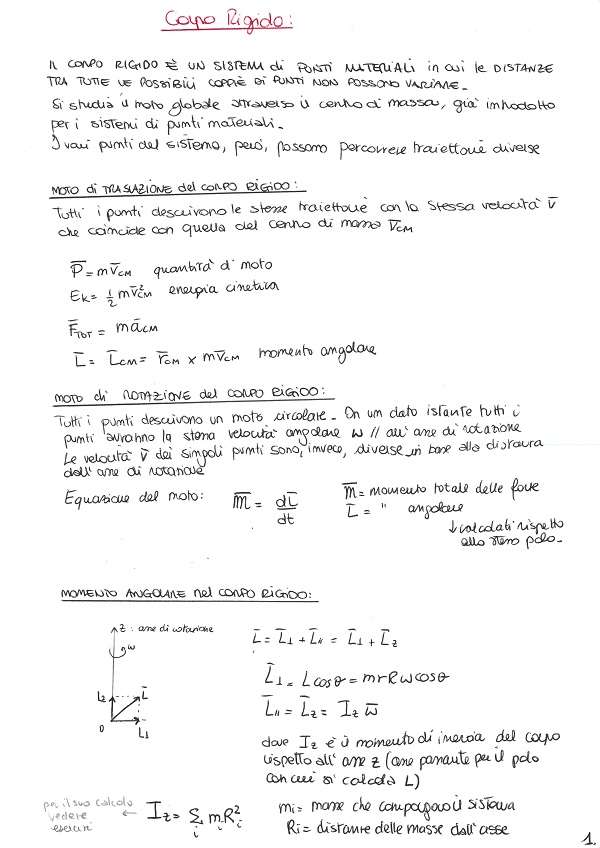 Corpo Rigido:
IL CORPO RIGIDO È UN SISTEMA di PUNTI MATERIALI in cui le DISTANZE
TRA TUTTE LE POSSIBILI COPPIE DI PUNTI NON POSSONO VARIARE.
Si studia il moto globale attraverso il centro di massa, già introdotto
per i sistemi di punti materiali.
I vari punti del sistema, però, possono percorrere traiettorie diverse
MOTO di TRASLAZIONE del CORPO RIGIDO:
Tutti i punti descrivono le stesse traiettorie con la stessa velocità v̄
che coincide con quella del centro di massa v̄CM
P̄ = m v̄CM quantità di moto
Ek = 1/2 m v̄²CM energia cinetica
F̄TOT = m āCM
L̄ = L̄CM = r̄CM × m v̄CM momento angolare
MOTO di ROTAZIONE del CORPO RIGIDO:
Tutti i punti descrivono un moto circolare. In un dato istante tutti i
punti avranno la stessa velocità angolare ω // all'asse di rotazione
Le velocità v̄ dei singoli punti sono, invece, diverse in base alla distanza
dall'asse di rotazione
Equazione del moto: M̄ = dL̄/dt
M̄ = momento totale delle forze
L̄ = " angolare
↓ calcolati rispetto
allo stesso polo.
MOMENTO ANGOLARE nel CORPO RIGIDO:
z: asse di rotazione
ω
Lz L̄
O L⊥
L̄ = L̄⊥ + L̄// = L̄⊥ + L̄z
L̄⊥ = L cosθ = m r R ω cosθ
L̄// = L̄z = Iz ω̄
dove Iz è il momento di inerzia del corpo
rispetto all'asse z (asse passante per il polo
con cui si calcola L)
per il suo calcolo
vedere
esercizi
← Iz = Σi mi Ri²
mi = masse che compongono il sistema
Ri = distanze delle masse dall'asse
1.